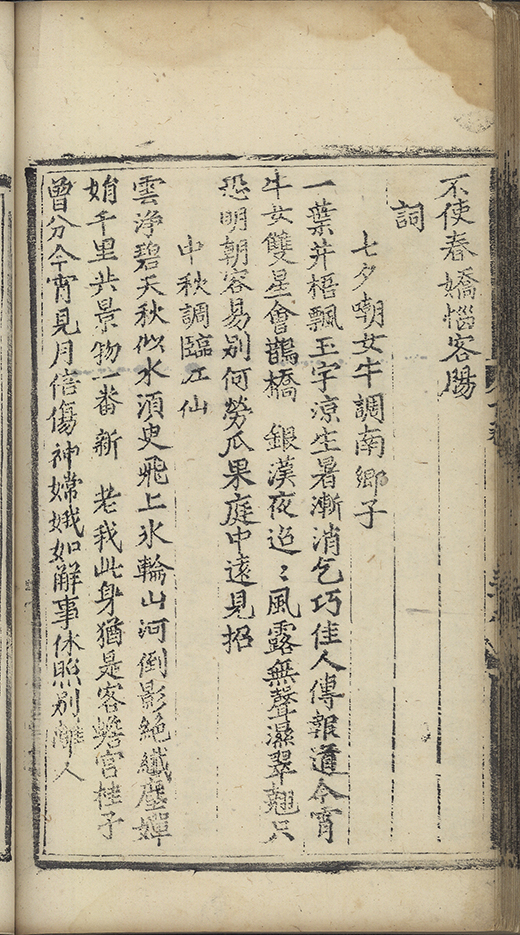 不使春嬌惱客腸
詞
七夕嘲女牛調南鄉子
一葉井梧飄玉宇涼生暑漸消乞巧佳人傳報道今宵
牛女雙星會鵲橋　銀漢夜迢〻風露無聲濕翠翹只
恐明朝容易別何勞瓜果庭中遠見招
中秋調臨江仙
雲淨碧天秋似水湏臾飛上氷輪山河倒影絶纖塵嬋
娟千里共景物一番新　老我此身猶是客蟾宮桂子
曾分今宵見月倍傷神嫦娥如解事休照別離人